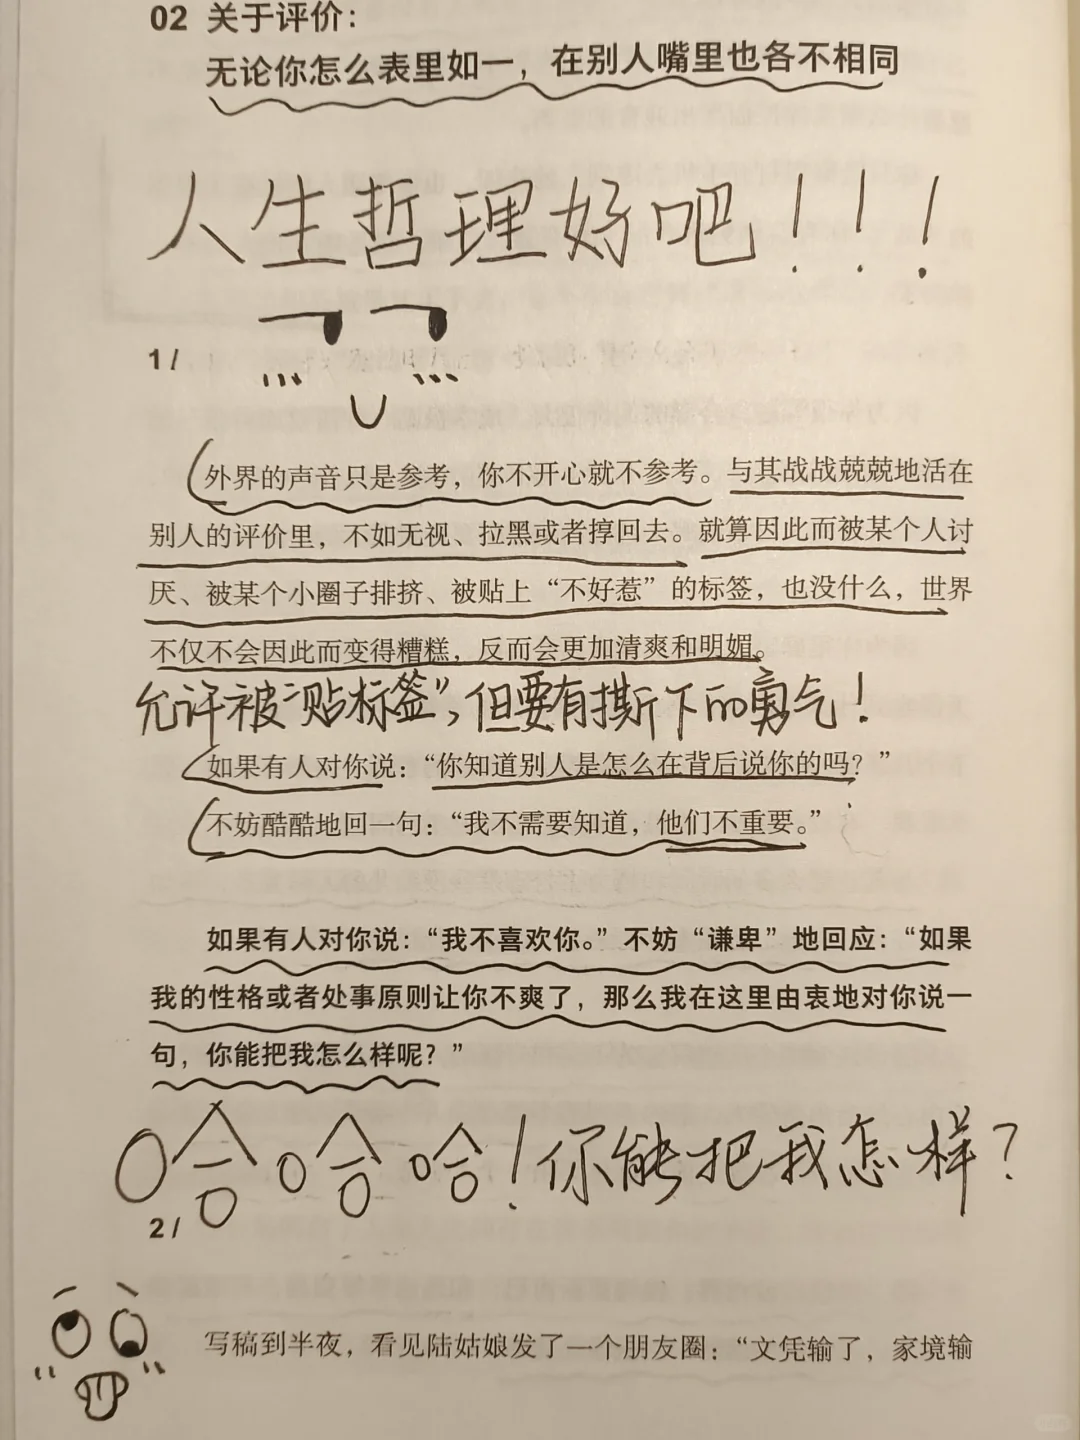 02 关于评价：
无论你怎么表里如一，在别人嘴里也各不相同
人生哲理好吧！！！
1 /
外界的声音只是参考，你不开心就不参考。与其战战兢兢地活在
别人的评价里，不如无视、拉黑或者掸回去。就算因此而被某个人讨
厌、被某个小圈子排挤、被贴上“不好惹”的标签，也没什么，世界
不仅不会因此而变得糟糕，反而会更加清爽和明媚。
允许被“贴标签”，但要有撕下的勇气！
如果有人对你说：“你知道别人是怎么在背后说你的吗？”
不妨酷酷地回一句：“我不需要知道，他们不重要。”
如果有人对你说：“我不喜欢你。”不妨“谦卑”地回应：“如果
我的性格或者处事原则让你不爽了，那么我在这里由衷地对你说一
句，你能把我怎么样呢？”
哈哈哈！你能把我怎样？
2 /
写稿到半夜，看见陆姑娘发了一个朋友圈：“文凭输了，家境输